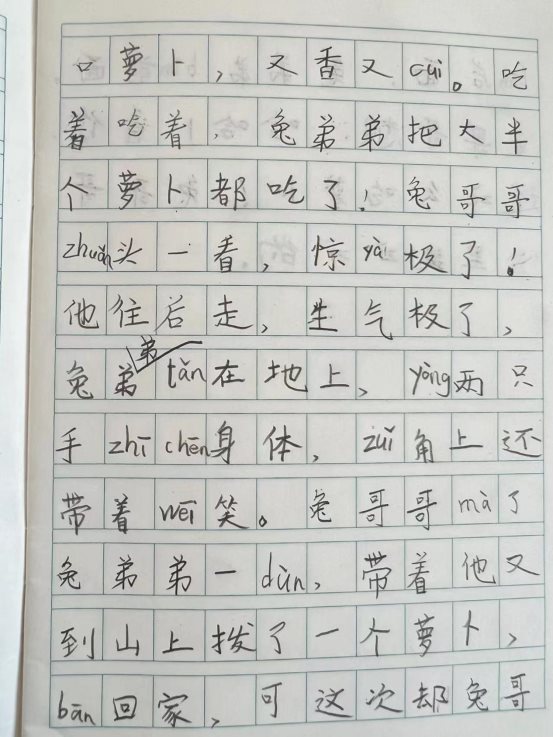 口萝卜，又香又cuì。吃
着吃着，兔弟弟把大半
个萝卜都吃了！兔哥哥
zhuǎn头一看，惊yà极了！
他往后走，生气极了，
兔弟弟tǎn在地上，yòng两只
手zhī chēn身体，zuǐ角上还
带着wēi笑。兔哥哥mà了
兔弟弟一dùn，带着他又
到山上拨了一个萝卜，
bān回家，可这次却兔哥